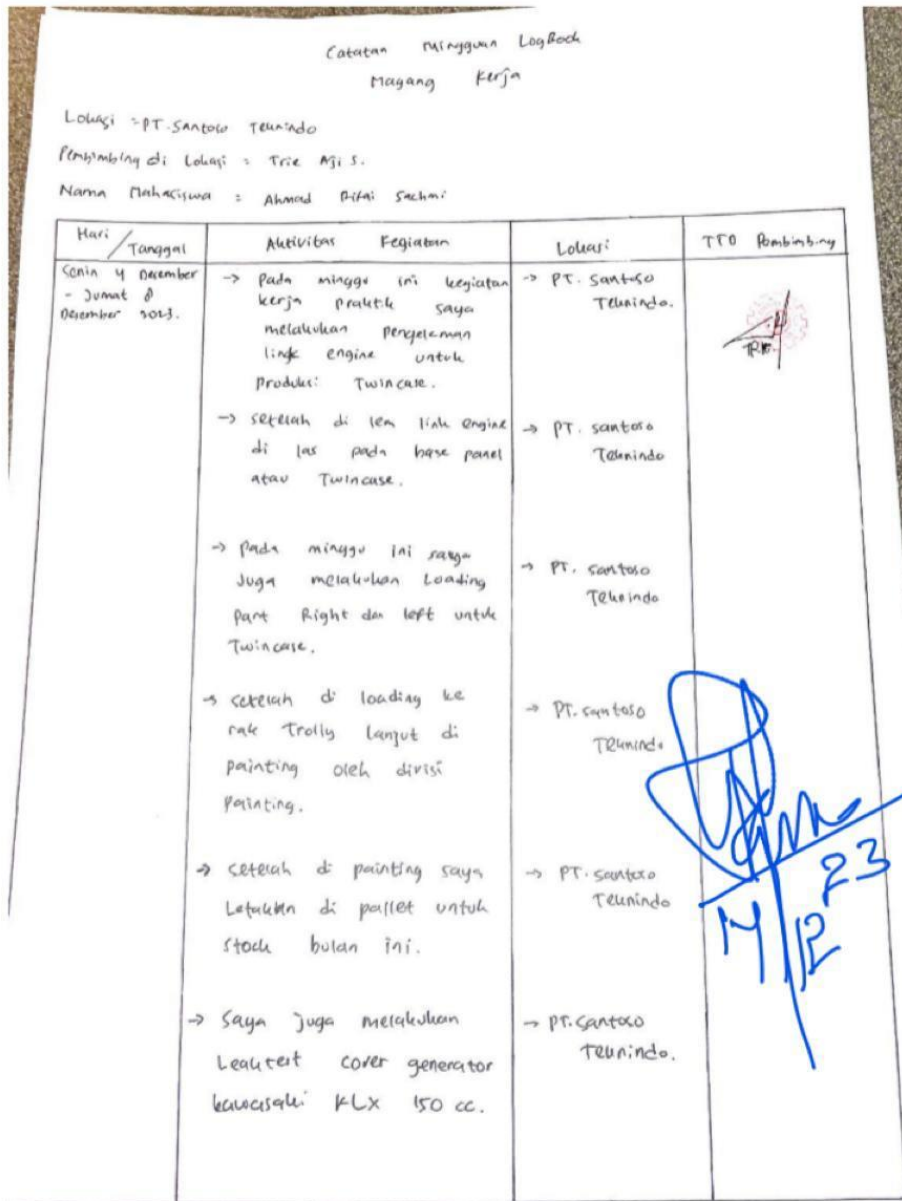 Catatan Mingguan LogBook
Magang Kerja
Lokasi : PT. Santoso Teknindo
Pembimbing di Lokasi : Trie Aji S.
Nama Mahasiswa : Ahmad Rifai Sachmi
Hari / Tanggal
Aktivitas Kegiatan
Lokasi
TTD Pembimbing
Senin 4 Desember
- Jumat 8
Desember 2023.
→ Pada minggu ini kegiatan
kerja praktik saya
melakukan pengeleman
link engine untuk
produksi Twincase.
→ PT. Santoso
Teknindo.
TRIE
→ setelah di lem link engine
di las pada base panel
atau Twincase.
→ PT. santoso
Teknindo
→ Pada minggu ini saya
Juga melakukan Loading
part Right dan left untuk
Twincase.
→ PT. santoso
Teknindo
→ setelah di loading ke
rak Trolly lanjut di
painting oleh divisi
painting.
→ PT. santoso
Teknindo
→ setelah di painting saya
Letakkan di pallet untuk
stock bulan ini.
→ PT. santoso
Teknindo
14/12 23
→ Saya juga melakukan
Leaktest cover generator
kawasaki KLX 150 cc.
→ PT. santoso
Teknindo.